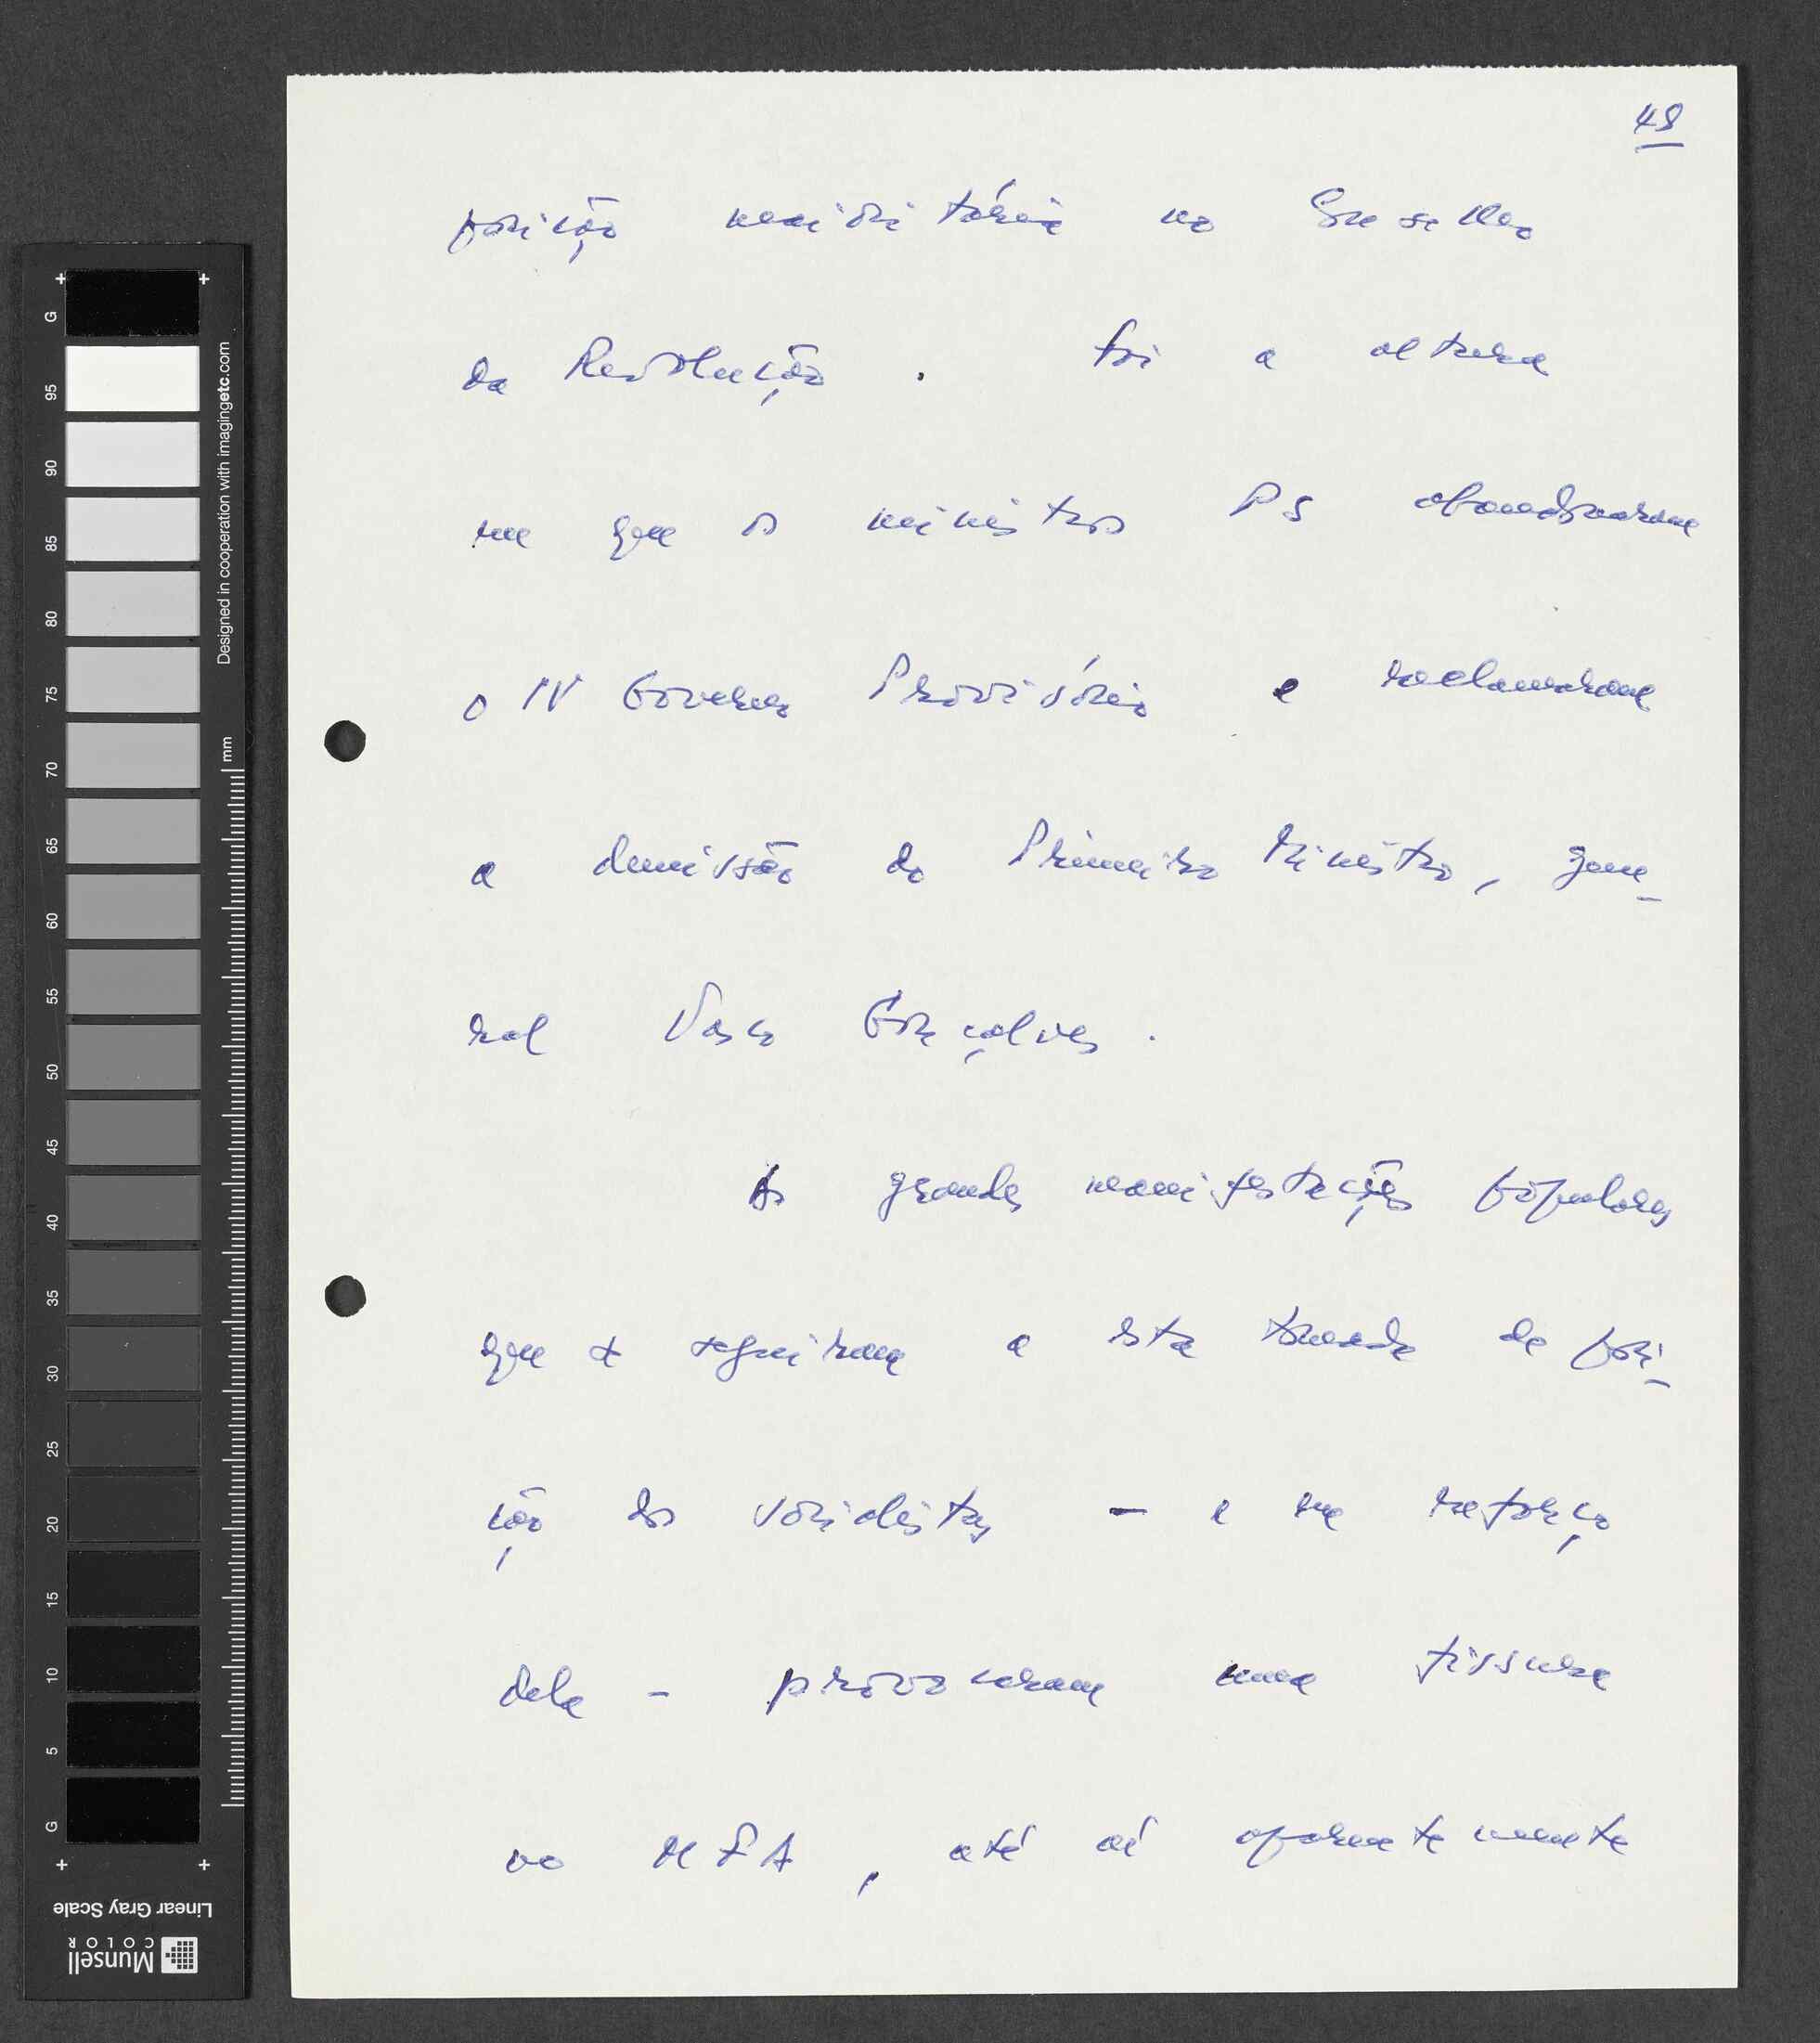 48
posição maioritária no Conselho
da Revolução. Foi a altura
em que os ministros PS abandonaram
o IV Governo Provisório e reclamaram
a demissão do Primeiro Ministro, gene-
ral Vasco Gonçalves.
As grandes manifestações populares
que se seguiram a esta tomada de posi-
ção dos socialistas - e em reforço
dela - provocaram uma fissura
no MFA, até aí aparentemente
G
95
90
85
80
75
70
65
60
55
50
45
40
35
30
25
20
15
10
5
G
Designed in cooperation with imagingetc.com
mm
Linear Gray Scale
Munsell
COLOR